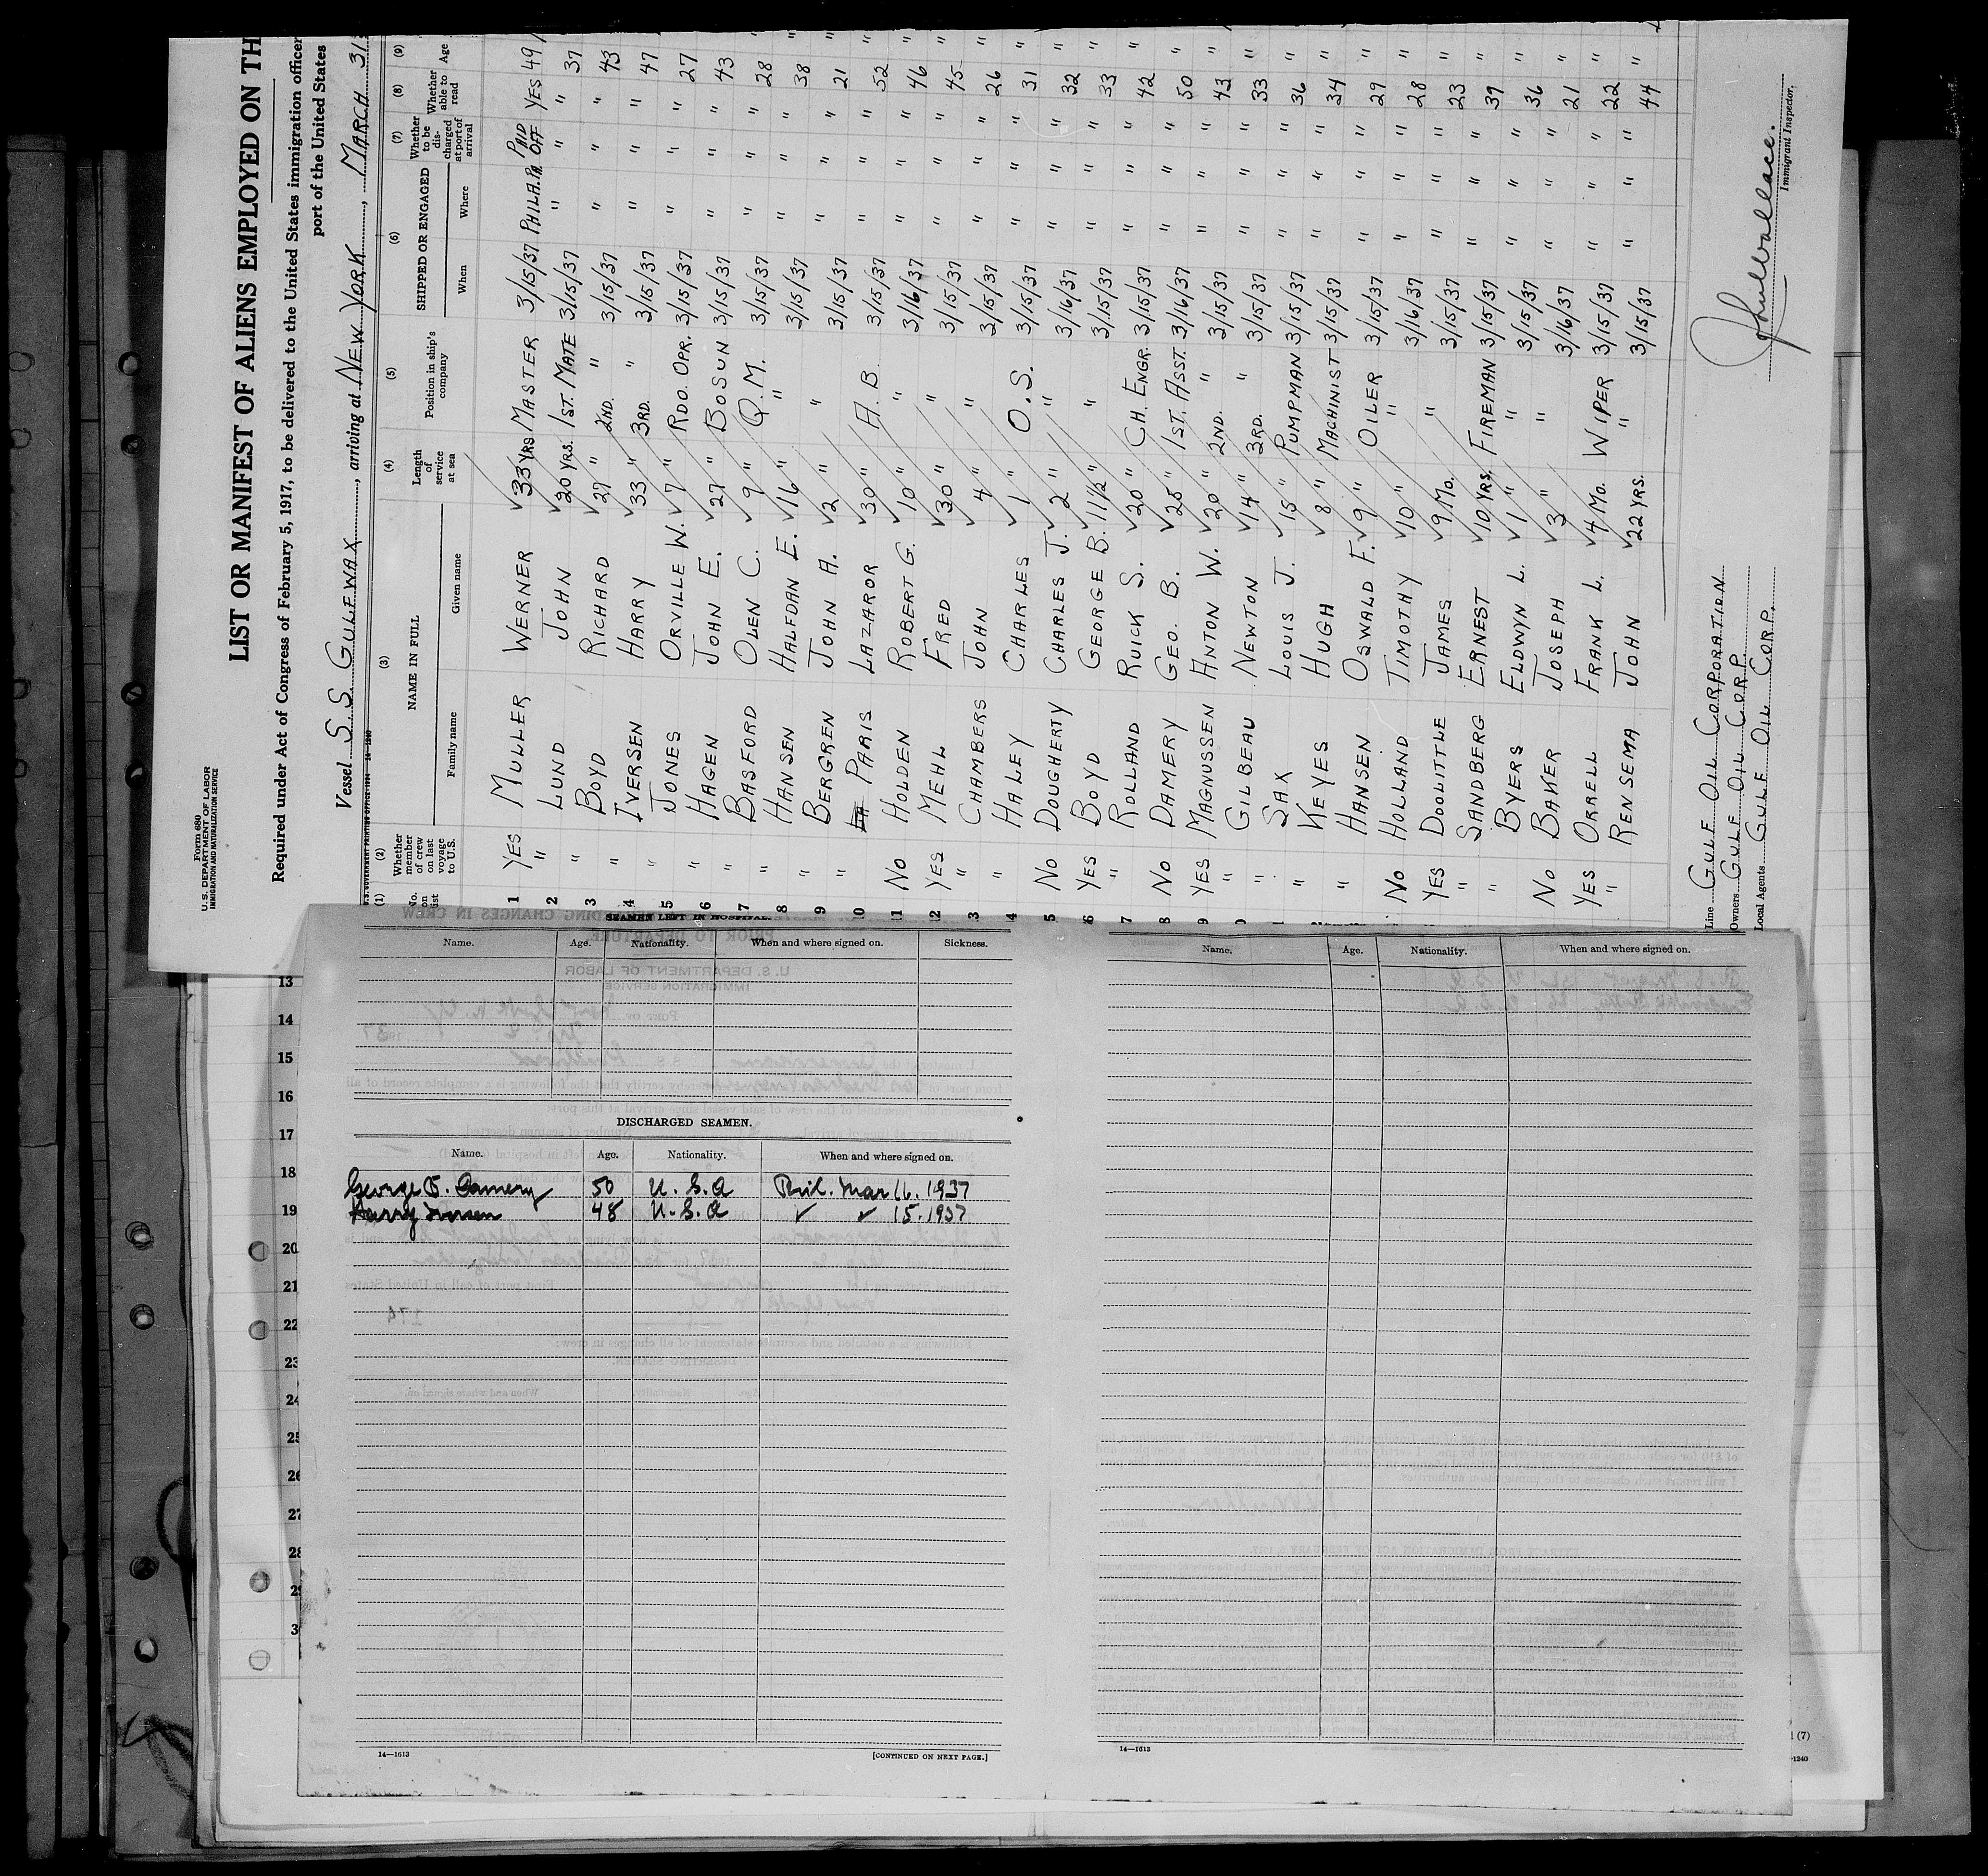 Form 680
U. S. DEPARTMENT OF LABOR
IMMIGRATION AND NATURALIZATION SERVICE
LIST OR MANIFEST OF ALIENS EMPLOYED ON TH
Required under Act of Congress of February 5, 1917, to be delivered to the United States immigration officer
port of the United States
Vessel S.S. GULFWAX, arriving at NEW YORK, MARCH 31
(1) (2) (3) (4) (5) (6) (7) (8) (9)
No. on list Whether member of crew on last voyage to U.S. NAME IN FULL Family name Given name Length of service at sea Position in ship's company SHIPPED OR ENGAGED When Where Whether to be discharged at port of arrival Whether able to read Age
1 YES MULLER WERNER 33 YRS MASTER 3/15/37 PHILA. PA PAID OFF YES 49
2 " LUND JOHN 20 YRS. 1ST. MATE 3/15/37 " " " 37
3 " BOYD RICHARD 27 " 2ND. " 3/15/37 " " " 43
4 " IVERSEN HARRY 33 " 3RD. " 3/15/37 " " " 47
5 " JONES ORVILLE W. 7 " RDO. OPR. 3/15/37 " " " 27
6 " HAGEN JOHN E. 27 " BOSUN 3/15/37 " " " 43
7 " BASFORD OLEN C. 9 " Q. M. 3/15/37 " " " 28
8 " HANSEN HALFDAN E. 16 " " 3/15/37 " " " 38
9 " BERGREN JOHN A. 2 " " 3/15/37 " " " 21
10 PARIS LAZAROR 30 " A. B. 3/15/37 " " " 52
11 NO HOLDEN ROBERT G. 10 " " 3/16/37 " " " 46
12 YES MEHL FRED 30 " " 3/15/37 " " " 45
3 " CHAMBERS JOHN 4 " " 3/15/37 " " " 26
4 " HALEY CHARLES 1 " O. S. 3/15/37 " " " 31
5 NO DOUGHERTY CHARLES J. 2 " " 3/16/37 " " " 32
6 YES BOYD GEORGE B. 11 1/2 " " 3/15/37 " " " 33
7 " ROLLAND RUICK S. 20 " CH. ENGR. 3/15/37 " " " 42
8 NO DAMERY GEO. B. 25 " 1ST. ASST. 3/16/37 " " " 50
9 YES MAGNUSSEN ANTON W. 20 " 2ND. " 3/15/37 " " " 43
0 " GILBEAU NEWTON 14 " 3RD. " 3/15/37 " " " 33
1 " SAX LOUIS J. 15 " PUMPMAN 3/15/37 " " " 36
" KEYES HUGH 8 " MACHINIST 3/15/37 " " " 34
HANSEN OSWALD F. 9 " OILER 3/15/37 " " " 29
NO HOLLAND TIMOTHY 10 " " 3/16/37 " " " 28
YES DOOLITTLE JAMES 9 MO. " 3/15/37 " " " 23
" SANDBERG ERNEST 10 YRS. FIREMAN 3/15/37 " " " 39
" BYERS ELDWYN L. 1 " " 3/15/37 " " " 36
NO BAKER JOSEPH 3 " " 3/16/37 " " " 21
YES ORRELL FRANK L. 4 MO. WIPER 3/15/37 " " " 22
" RENSEMA JOHN 22 YRS. " 3/15/37 " " " 44
Line GULF OIL CORPORATION
Owners GULF OIL CORP
Local Agents GULF OIL CORP.
John Wallace.
Immigrant Inspector.
SEAMEN LEFT IN HOSPITAL.
Name. Age. Nationality. When and where signed on. Sickness.
DISCHARGED SEAMEN.
Name. Age. Nationality. When and where signed on.
George B. Damery 50 U. S. A Phil. Mar 16. 1937
Harry 48 U. S. A ✓ ✓ 15. 1937
14—1613 [CONTINUED ON NEXT PAGE.]
Name. Age. Nationality. When and where signed on.
14—1613
13
14
15
16
17
18
19
20
21
22
23
24
25
26
27
28